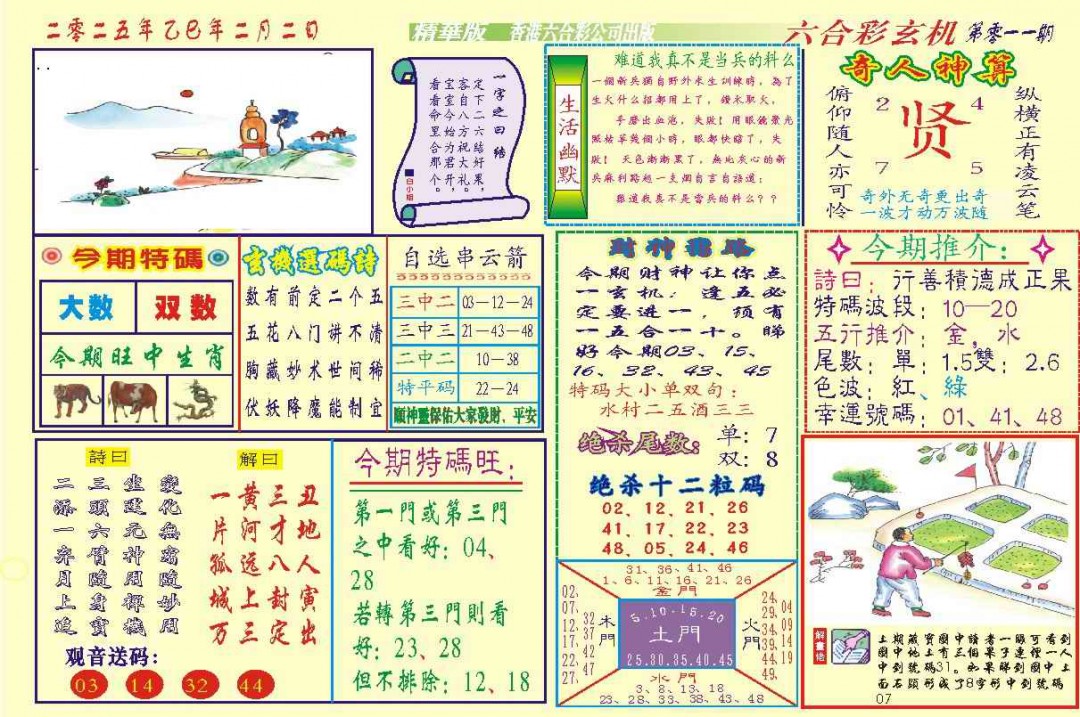 二零二五年乙巳年二月二日
精華版 香港六合彩公司出版
六合彩玄机 第零一一期
一字之曰结
定下二六结好果，
客自八方祝大礼。
宝宝今始为君开。
看看命里合那个
白小姐
生活幽默
难道我真不是当兵的料么
一個新兵獨自野外求生訓練時，為了
生火什么招都用上了，鑽木取火，
手磨出血泡，失敗！用眼鏡聚光
照枯草幾個小時，眼都快瞎了，失
敗！天色漸漸黑了，無地灰心的新
兵麻利路超一支烟自言自語道：
難道我真不是當兵的料么？？
奇人神算
俯仰随人亦可怜
2 4
贤
7 5
纵横正有凌云笔
奇外无奇更出奇
一波才动万波随
今期特碼
大数 双数
今期旺中生肖
玄機選碼詩
数有前定二个五
五花八门讲不清
胸藏妙术世间稀
伏妖降魔能制宜
自选串云箭
三中二 03—12—24
三中三 21—43—48
二中二 10—38
特平码 22—24
願神靈保佑大家發財、平安
今期财神让你点
一玄机：逢五必
定要进一，须有
一五合一十。睇
好今期03、15、
16、32、43、45
特码大小单双句：
水村二五酒三三
绝杀尾数： 单：7
双：8
绝杀十二粒码
02、12、21、26
41、17、22、23
48、05、24、46
今期推介：
詩曰：行善積德成正果
特碼波段：10—20
五行推介：金，水
尾數：單：1.5雙：2.6
色波：紅、綠
幸運號碼：01、41、48
詩曰
變化無窮隨妙用
三頭六臂隨身寶
二添一弃月上追
解曰
丑地人寅出
三才八封定
黄河远上三
一片孤城万
观音送码：
03 14 32 44
今期特碼旺：
第一門或第三門
之中看好：04、
28
若轉第三門則看
好：23、28
但不排除：12、18
31、36、41、46
1、6、11、16、21、26
金門
02、07、12、17、22、27
32、37、42、47
木門
5.10.15.20
土門
25.30.35.40.45
火門
24、29、34、39、44、49、
04、09、14、19
水門
3、8、13、18
23、28、33、38、43、48
解畫信
上期藏寶圖中讀者一眼可看到
圖中地上有三個果子連裡一人
中到號碼31。如果睇到圖中上
面石頭形成了8字形中到號碼
07